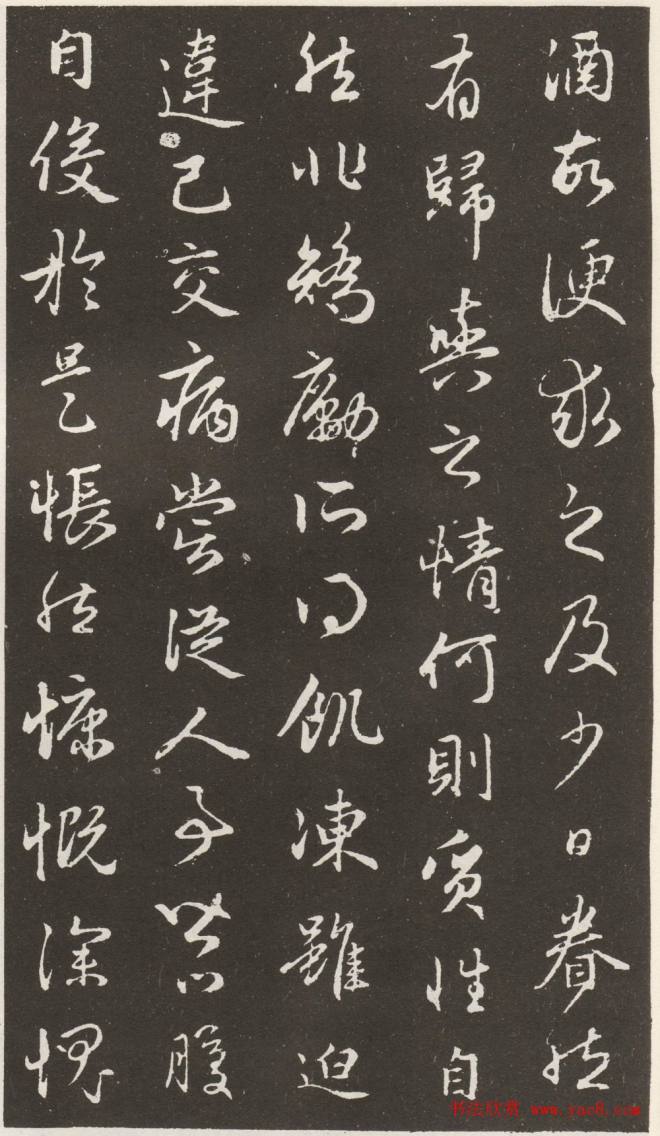 酒故便求之及少日眷然
有歸與之情何則質性自
然非矯勵所得飢凍雖迫
違己交病嘗從人事皆口腹
自役於是悵然慷慨深愧
书法欣赏 www.yac8.com